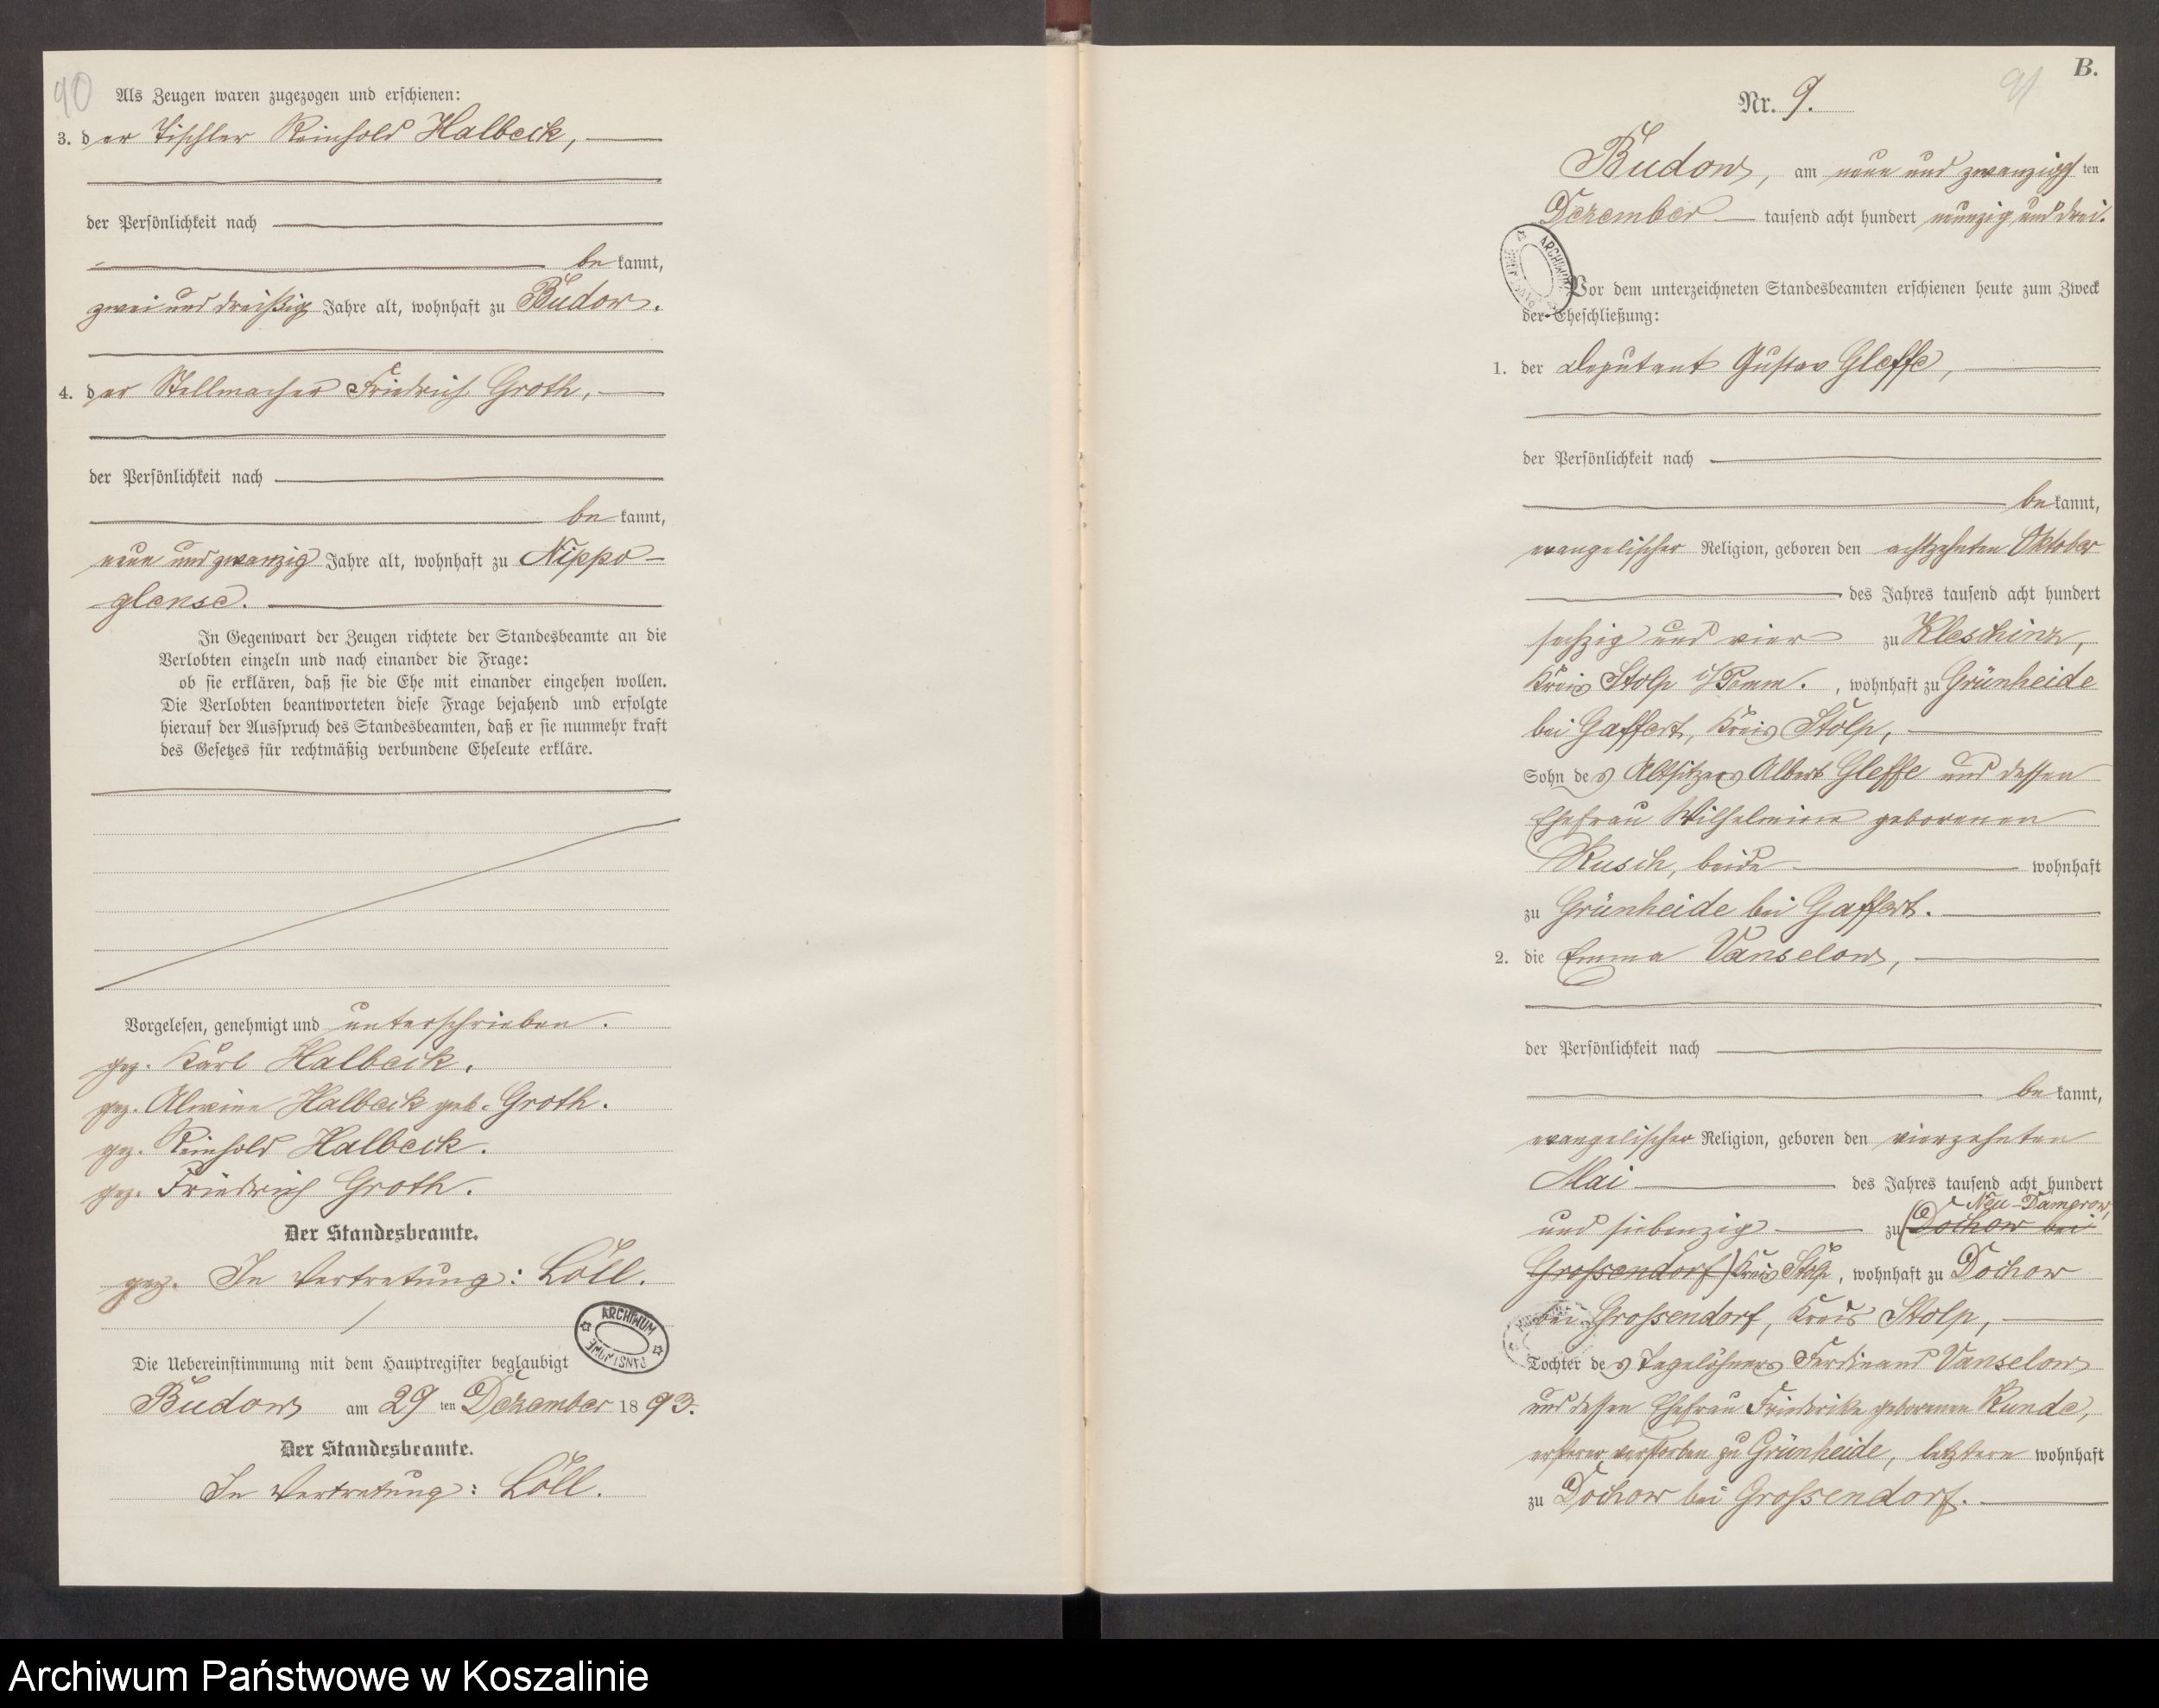 90
Als Zeugen waren zugezogen und erschienen:
3. der Tischler Reinhold Halbeck,
der Persönlichkeit nach
be kannt,
zwei und dreißig Jahre alt, wohnhaft zu Budow.
4. der Stellmacher Friedrich Groth,
der Persönlichkeit nach
be kannt,
neun und zwanzig Jahre alt, wohnhaft zu Nippo-
glense.
In Gegenwart der Zeugen richtete der Standesbeamte an die
Verlobten einzeln und nach einander die Frage:
ob sie erklären, daß sie die Ehe mit einander eingehen wollen.
Die Verlobten beantworteten diese Frage bejahend und erfolgte
hierauf der Ausspruch des Standesbeamten, daß er sie nunmehr kraft
des Gesetzes für rechtmäßig verbundene Eheleute erkläre.
Vorgelesen, genehmigt und unterschrieben.
gez. Karl Halbeck.
gez. Alwine Halbeck geb. Groth.
gez. Reinhold Halbeck.
gez. Friedrich Groth.
Der Standesbeamte.
gez. In Vertretung: Löll.
ARCHIWUM PAŃSTWOWE
Die Uebereinstimmung mit dem Hauptregister beglaubigt
Budow am 29 ten Dezember 18 93.
Der Standesbeamte.
In Vertretung: Löll.
91
B.
Nr. 9.
Budow, am neun und zwanzigsten
Dezember tausend acht hundert neunzig und drei.
Vor dem unterzeichneten Standesbeamten erschienen heute zum Zweck
der Eheschließung:
1. der Deputant Gustav Gleffe,
der Persönlichkeit nach
be kannt,
evangelischer Religion, geboren den achtzehnten Oktober
des Jahres tausend acht hundert
sechzig und vier zu Kleschinz,
Kreis Stolp i/Pomm., wohnhaft zu Grünheide
bei Gaffert, Kreis Stolp,
Sohn des Altsitzers Albert Gleffe und dessen
Ehefrau Wilhelmine geborenen
Rusch, beide wohnhaft
zu Grünheide bei Gaffert.
2. die Emma Vanselow,
der Persönlichkeit nach
be kannt,
evangelischer Religion, geboren den vierzehnten
Mai des Jahres tausend acht hundert
Neu-Damerow,
und siebenzig zu (Dochow bei
Grossendorf) Kreis Stolp, wohnhaft zu Dochow
bei Grossendorf, Kreis Stolp,
Tochter des Tagelöhners Ferdinand Vanselow
und dessen Ehefrau Friederike geborenen Kunde,
ersterer verstorben zu Grünheide, letztere wohnhaft
zu Dochow bei Grossendorf.
Archiwum Państwowe w Koszalinie